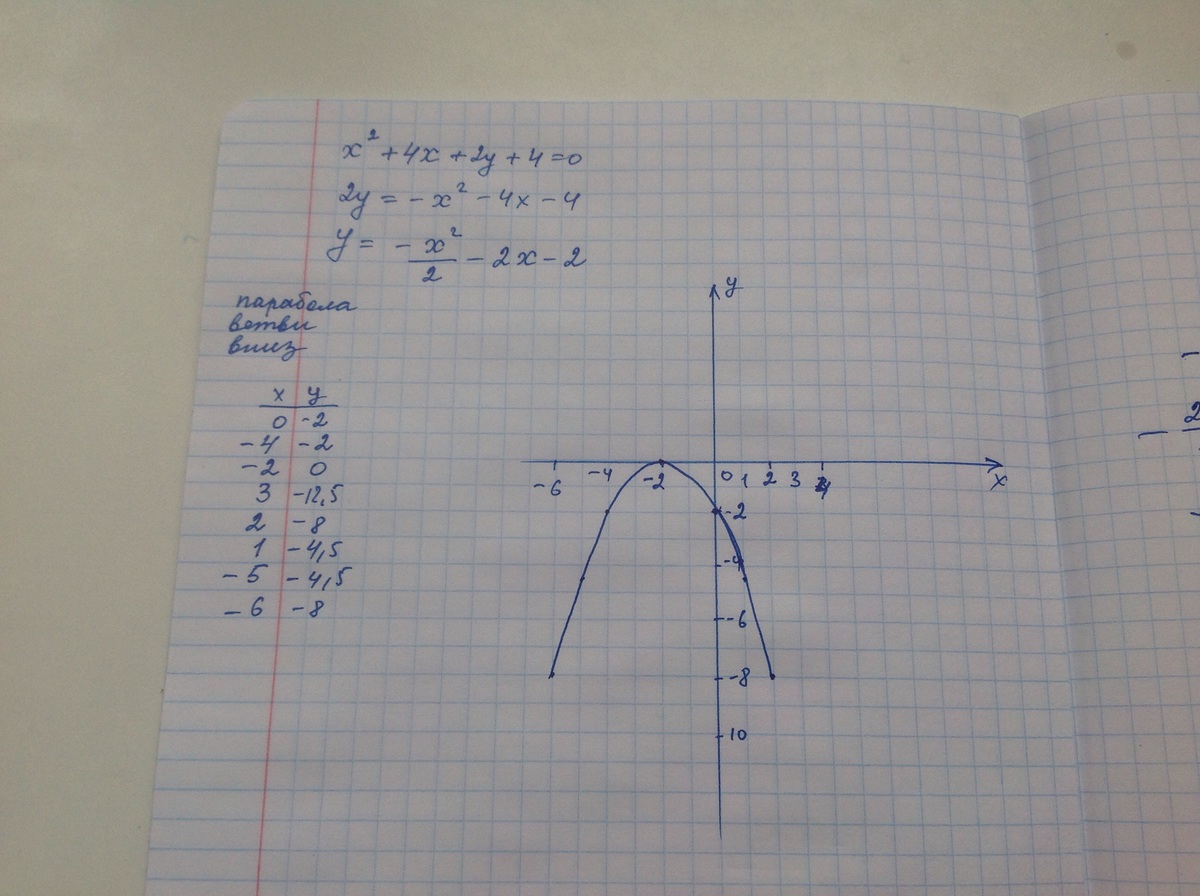 x² + 4x + 2y + 4 = 0
2y = - x² - 4x - 4
y = - x²/2 - 2x - 2
парабола
ветви
вниз
x y
0 -2
-4 -2
-2 0
3 -12,5
2 -8
1 -4,5
-5 -4,5
-6 -8
y
-6 -4 -2 0 1 2 3 4 x
-2
-4
-6
-8
10
- 2